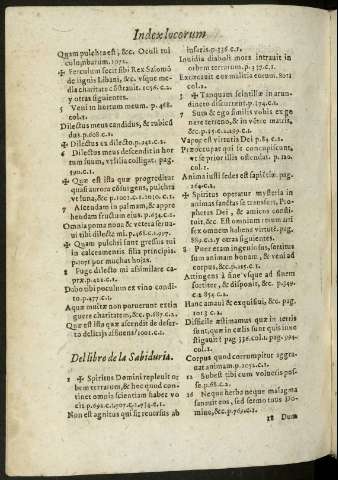 Index locorum
Quam pulchra est, &c. Oculi tui
columbarum. 1072.
✠ Ferculum fecit sibi Rex Salomō
de lignis Libani, &c. vsque me-
dia charitate cōstrauit. 1056. c.2
y otras siguientes.
5 Veni in hortum meum. p.468.
col.1.
Dilectus meus candidus, & rubicū
dus. p.608. c.1.
✠ Dilectus ex dilecto. p.242. c.1.
6 Dilectus meus descendit in hor
tum suum, vt lilia colligat. pag.
190. c.1.
✠ Quæ est ista quæ progreditur
quasi aurora cōsurgens, pulchra
vt luna, &c. p.1002. c.1. 2010. c.1.
7 Ascendam in palmam, & appre
hendam fructum eius. p.634. c.1.
Omnia poma noua & vetera serua-
ui tibi dilecte mi. p.468. c.1. 917.
✠ Quam pulchri sunt gressus tui
in calceamentis filia principis.
p.1071. por muchas hojas.
8 Fuge dilecte mi assimilare ca-
præ. p.422. c.1.
Dabo tibi poculum ex vino condi
to. p.477. c.1.
Aquæ multæ non poruerunt extin
guere charitatem, &c. p.887. c.1.
Quæ est ista quæ ascendit de deser-
to delicijs affluens? 1001. c.1.
Del libro de la Sabiduria.
1 ✠ Spiritus Domini repleuit or
bem terrarum, & hoc quod con
tinet omnia scientiam habet vo
cis. p.692. c.1. 707. c.1. 734. c.1.
Non est agnitus qui sit reuersus ab
inferis. p.336. c.1.
Inuidia diaboli mors intrauit in
orbem terrarum. p.337. c.1.
Exterauit eos malitia eorum. 8071
col.1.
3 ✠ Tanquam scintillæ in arun-
dineto discurrent. p.174. c.1.
7 Sum & ego similis vobis ex ge
nere terreno, & in vẽtre matris,
&c. p.15. c.2. 239. c.1.
Vapor est virtutis Dei. p.84. c.1.
Præoccupat qui se concupiscunt,
vt se prior illis ostendat. p.120.
col.1.
Anima iusti sedes est sapiẽtiæ. pag.
264. c.1.
✠ Spiritus operatur mysteria in
animas sanctas se transfert, Pro-
phetas Dei, & amicos consti-
tuit, &c. Est omnium rerum arti
fex omnem habens virtutẽ. pag.
889. c.1. y otras siguientes.
8 Puer eram ingeniosus, sortitus
sum animam bonam, & veni ad
corpus, &c. p.195. c.1.
Attingens à fine vsque ad finem
fortiter, & disponit, &c. p.349.
c.2. 854. c.2.
Hanc amaui & exquisiui, &c. pag.
1013. c.2.
Difficile æstimamus quæ in terris
sunt, quæ in cœlis sunt quis inue
stigauit? pag. 336. col.1. pag. 394.
col.1.
Corpus quod corrumpitur aggra-
uat animam. p.1052. c.1.
12 Subest tibi cum volueris pos-
se. p.68. c.2.
16 Neque herba neque malagma
sanauit eos, sed sermo tuus Do-
mino, &c. p.769. c.1.
18 Dum